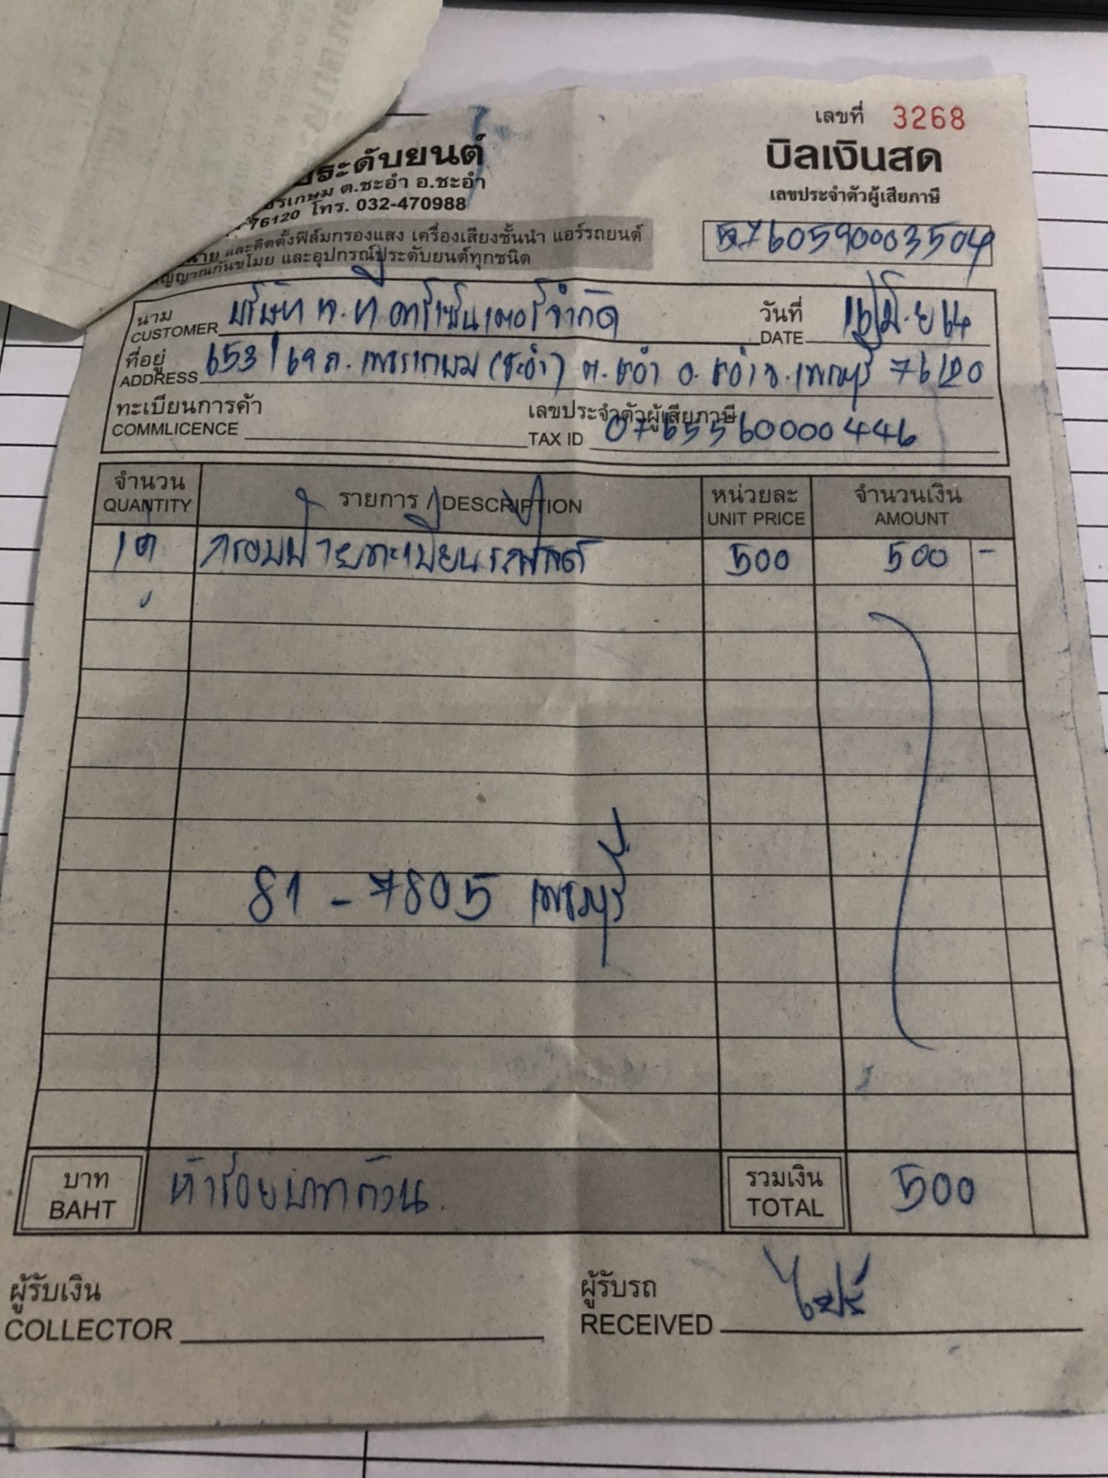 เลขที่ 3268
ประดับยนต์
บิลเงินสด
ต.ชะอำ อ.ชะอำ
76120 โทร. 032-470988
เลขประจำตัวผู้เสียภาษี
และติดตั้งฟิล์มกรองแสง เครื่องเสียงชั้นนำ แอร์รถยนต์
5760590003504
สัญญาณกันขโมย และอุปกรณ์ประดับยนต์ทุกชนิด
นาม
CUSTOMER บริษัท จ.ที คาร์เซ็นเตอร์ จำกัด
วันที่
DATE 16 มิ.ย 64
ที่อยู่
ADDRESS 653/69 ถ.เพชรเกษม (ชะอำ) ต.ชะอำ อ.ชะอำ จ.เพชรบุรี 76120
ทะเบียนการค้า
COMMLICENCE
เลขประจำตัวผู้เสียภาษี
TAX ID 0765560000446
จำนวน รายการ / DESCRIPTION หน่วยละ จำนวนเงิน
QUANTITY UNIT PRICE AMOUNT
กรอบป้ายทะเบียนรถยนต์ 500 500 -
81-7805 เพชรบุรี
บาท ห้าร้อยบาทถ้วน. รวมเงิน 500
BAHT TOTAL
ผู้รับเงิน
COLLECTOR
ผู้รับรถ
RECEIVED